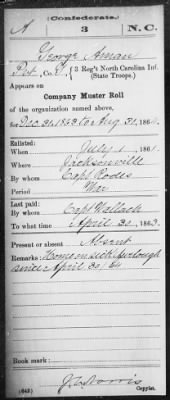 (Confederate.)
A 3 N.C.
George Aman
Pvt, Co. , 3 Reg't North Carolina Inf.
(State Troops.)
Appears on
Company Muster Roll
of the organization named above,
for Dec 31, 1863 to Aug 31, 1864.
Enlisted:
When July 1, 1861.
Where Jacksonville
By whom Capt Rodes
Period War
Last paid:
By whom Capt Wallack
To what time April 30, 1863.
Present or absent Absent
Remarks: Home on sick furlough
since April 30/64
Book mark:
(642) Copyist.